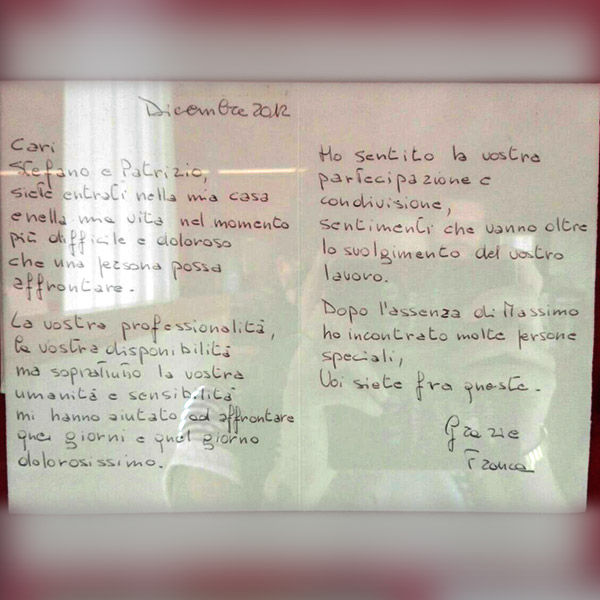 Dicembre 2012
Cari
Stefano e Patrizio,
siete entrati nella mia casa
e nella mia vita nel momento
più difficile e doloroso
che una persona possa
affrontare.
La vostra professionalità,
la vostra disponibilità
ma soprattutto la vostra
umanità e sensibilità
mi hanno aiutato ad affrontare
quei giorni e quel giorno
dolorosissimo.
Ho sentito la vostra
partecipazione e
condivisione,
sentimenti che vanno oltre
lo svolgimento del vostro
lavoro.
Dopo l'assenza di Massimo
ho incontrato molte persone
speciali,
Voi siete fra queste.
Grazie
Franca